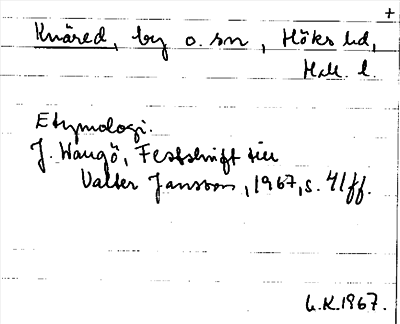 +
Knäred, by o. sn, Höks hd,
Hall. l.
Etymologi.
J. Waugö, Festskrift till
Valter Jansson, 1967, s. 41ff.
L.K. 1967.